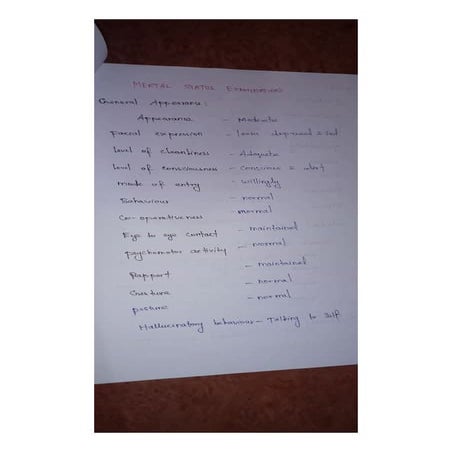 MENTAL STATUS EXAMINATION
General Appearance:
Appearance - Moderate
Facial expression - looks depressed & sad
level of cleanliness - Adequate
level of consciousness - conscious & alert
mode of entry - willingly
Behaviour - normal
Co-operativeness - normal
Eye to eye contact - maintained
psychomotor activity - normal
Rapport - maintained
Gesture - normal
posture - normal
Hallucinatory behaviour - Talking to self